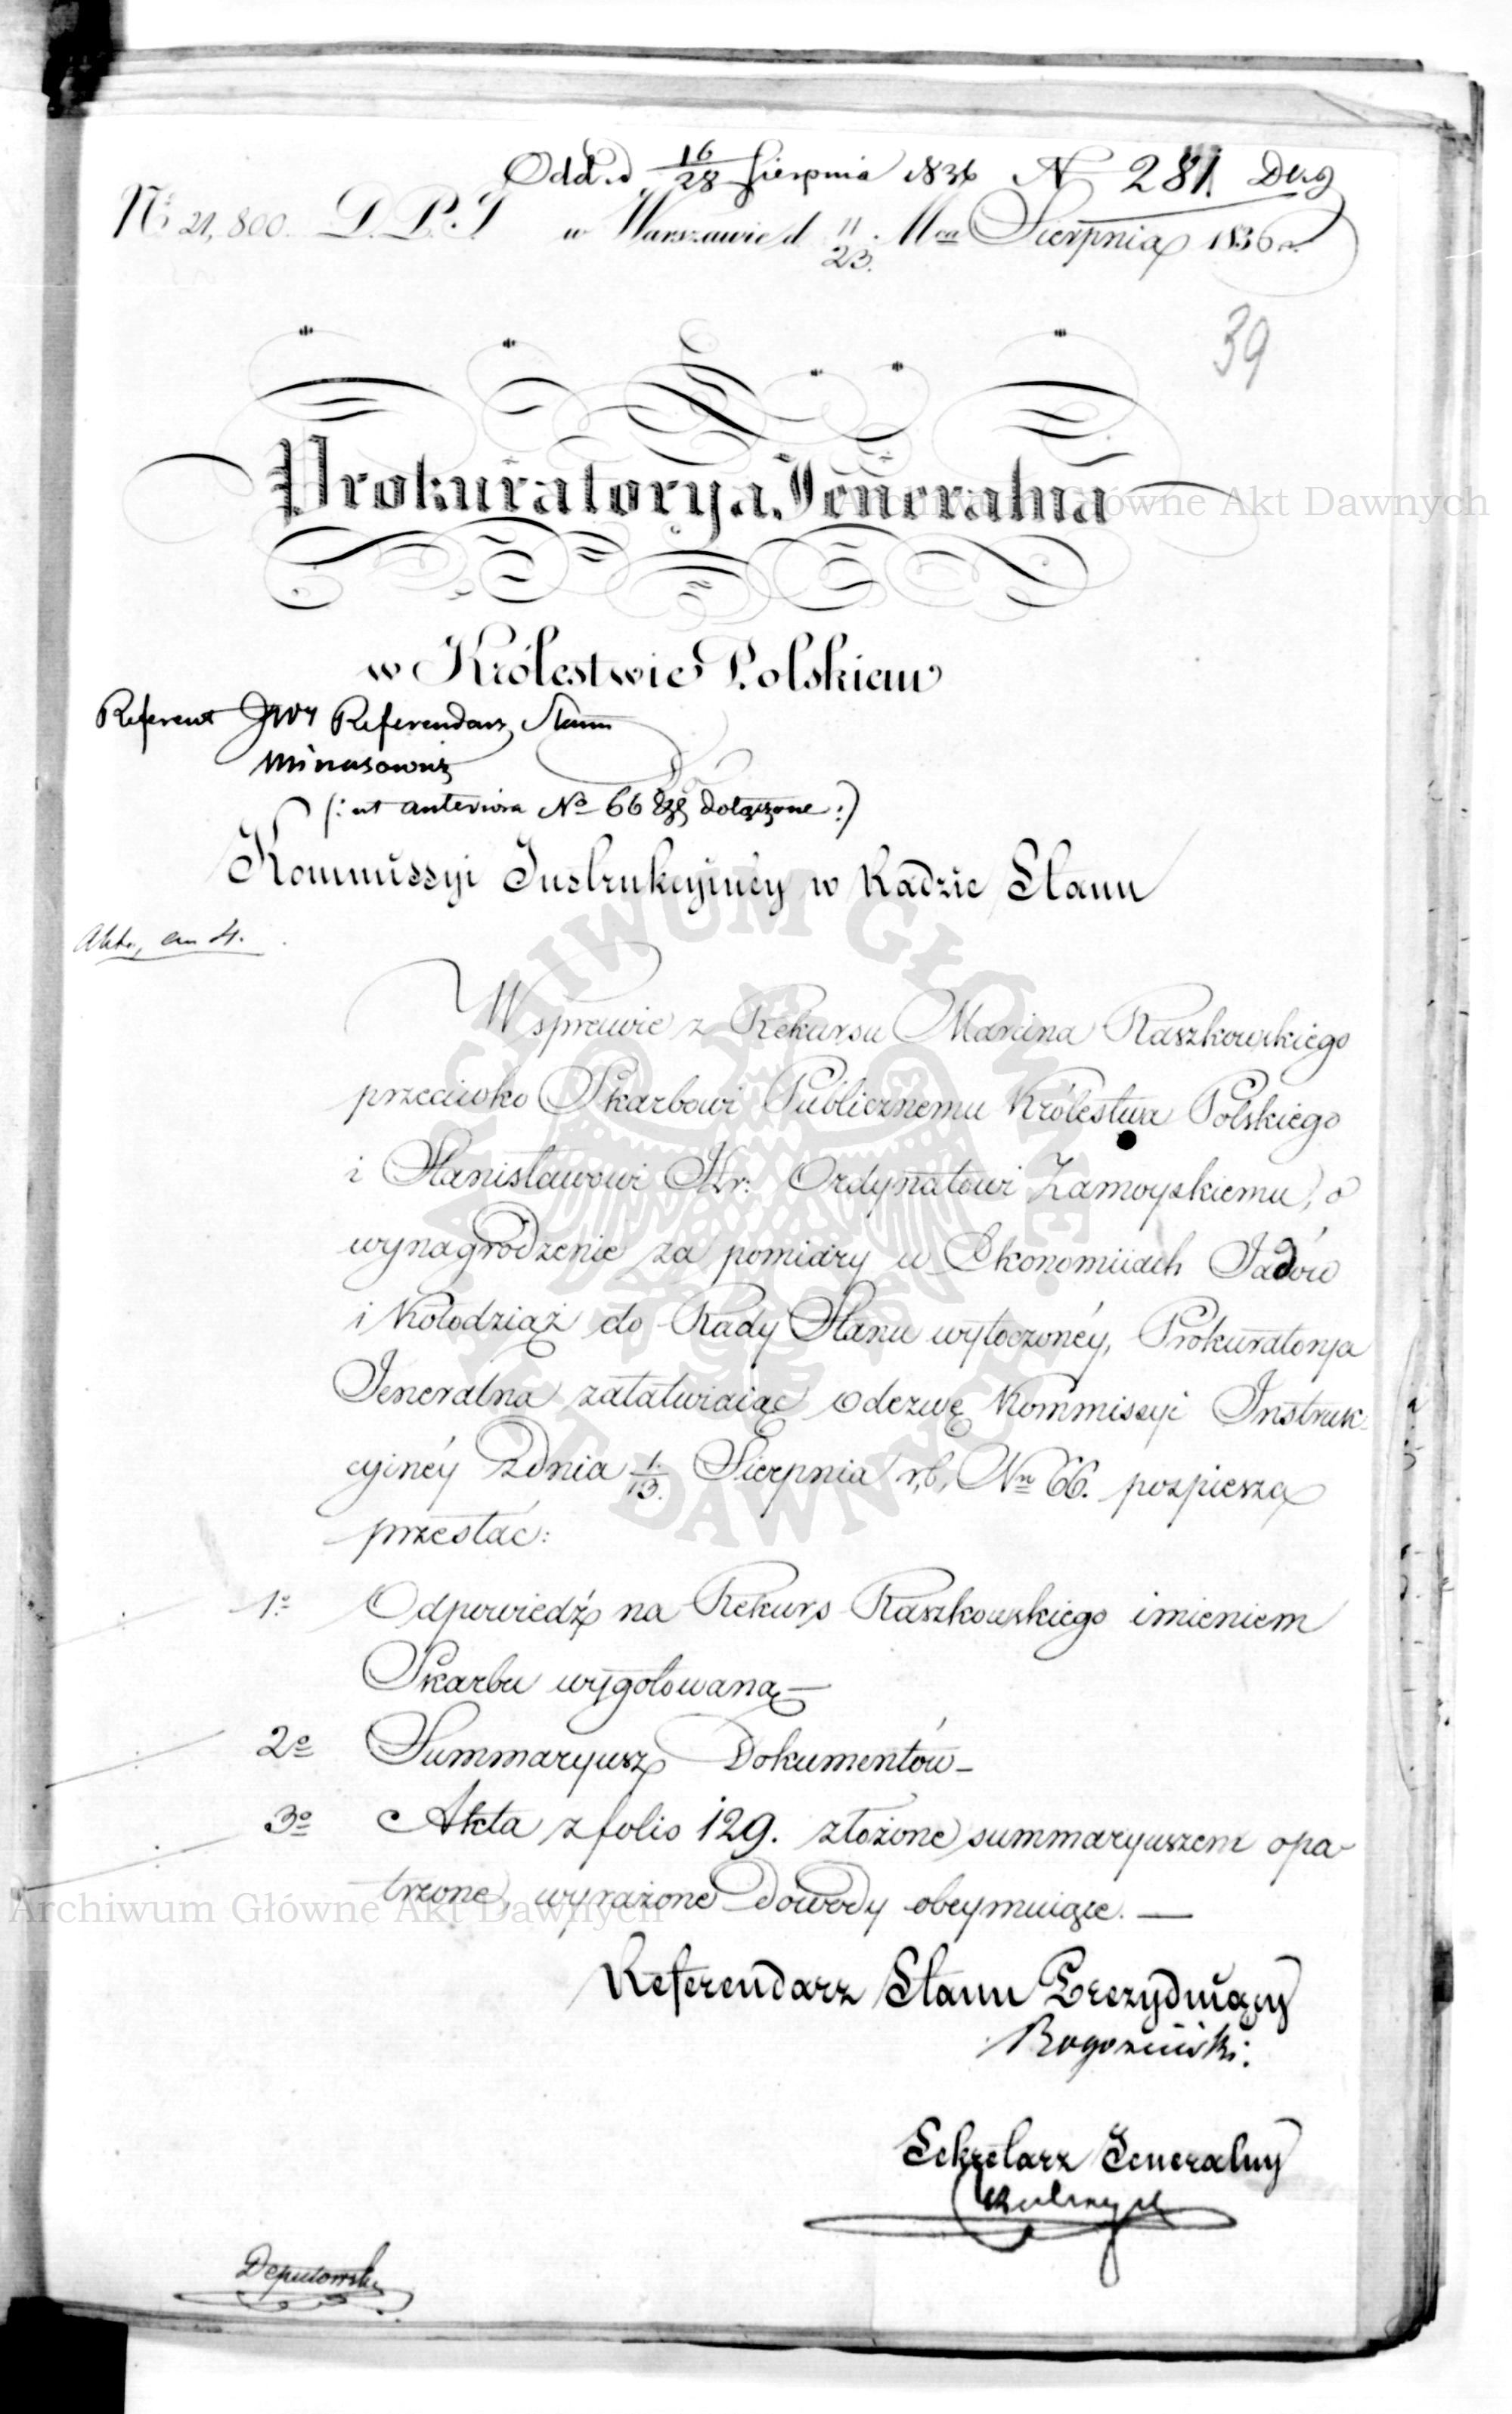 Odd. d. 16/28 Sierpnia 1836 N 281 Deg
No 21,800. D.P.S w Warszawie d 11/23. Mca Sierpnia 1836 r.
39
Prokuratorya Jeneralna
w Królestwie Polskiem
Referent JW Referendarz Stanu
Minasowicz
Do
(: ut anteriora No 66 dołączone :)
Kommissyi Instrukcyjnéy w Radzie Stanu
Akta, an 4.
W sprawie z Rekursu Marcina Raszkowskiego
przeciwko Skarbowi Publicznemu Królestwa Polskiego
i Stanisławowi Hr: Ordynatowi Zamoyskiemu, o
wynagrodzenie za pomiary w Ekonomiiach Jadów
i Kołodziąż do Rady Stanu wytoczonéy, Prokuratorya
Jeneralna załatwiaiąc odezwę Kommissyi Instruk-
cyinéy z dnia 1/13. Sierpnia r, b, Nr 66. pospiesza
przesłać:
1o Odpowiedź na Rekurs Raszkowskiego imieniem
Skarbu wygotowaną —
2o Summaryusz Dokumentów —
3o Akta z folio 129. złożone summaryuszem opa-
trzone, wyrażone dowody obeymuiące. —
Referendarz Stanu Prezyduiący
Rogoziński.
Sekretarz Jeneralny
Archiwum Główne Akt Dawnych
Archiwum Główne Akt Dawnych
ARCHIWUM GŁÓWNE AKT DAWNYCH